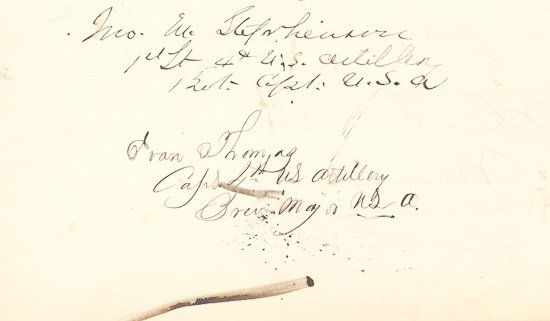 Jno. M. Stephenson
1st Lt 4th U.S. Artillery
Bvt. Capt. U.S.A
Evan Thomas
Capt 4th US Artillery
Brev. Major U.S. A.